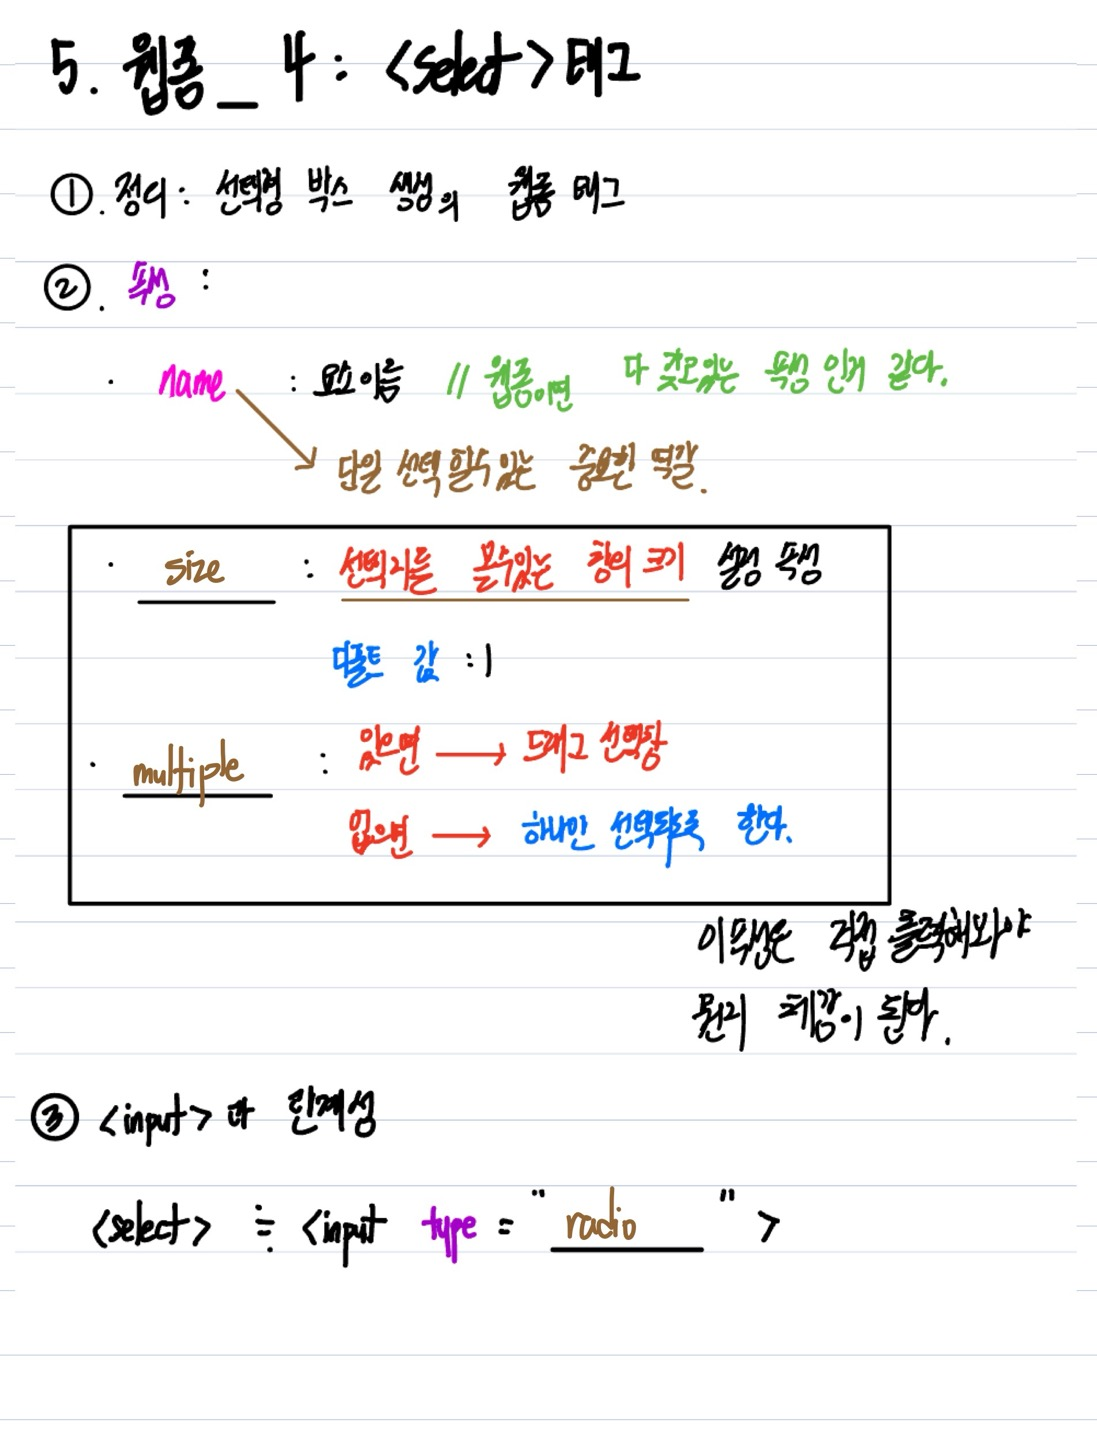 5. 웹폼_4: <select>태그
①. 정의: 선택형 박스 생성의 웹폼 태그
②. 속성 :
· name : 요소이름 // 웹폼이면 다 갖고있는 속성 인거 같다.
단일 선택 할수있는 중요한 역할.
· size : 선택지를 볼수있는 창의 크기 설정 속성
디폴트 값 : 1
· multiple : 있으면 → 드래그 선택창
없으면 → 하나만 선택되도록 한다.
이 속성은 직접 출력해봐야
뭔지 체감이 된다.
③ <input> 과 관계성
<select> ≒ <input type = "radio">